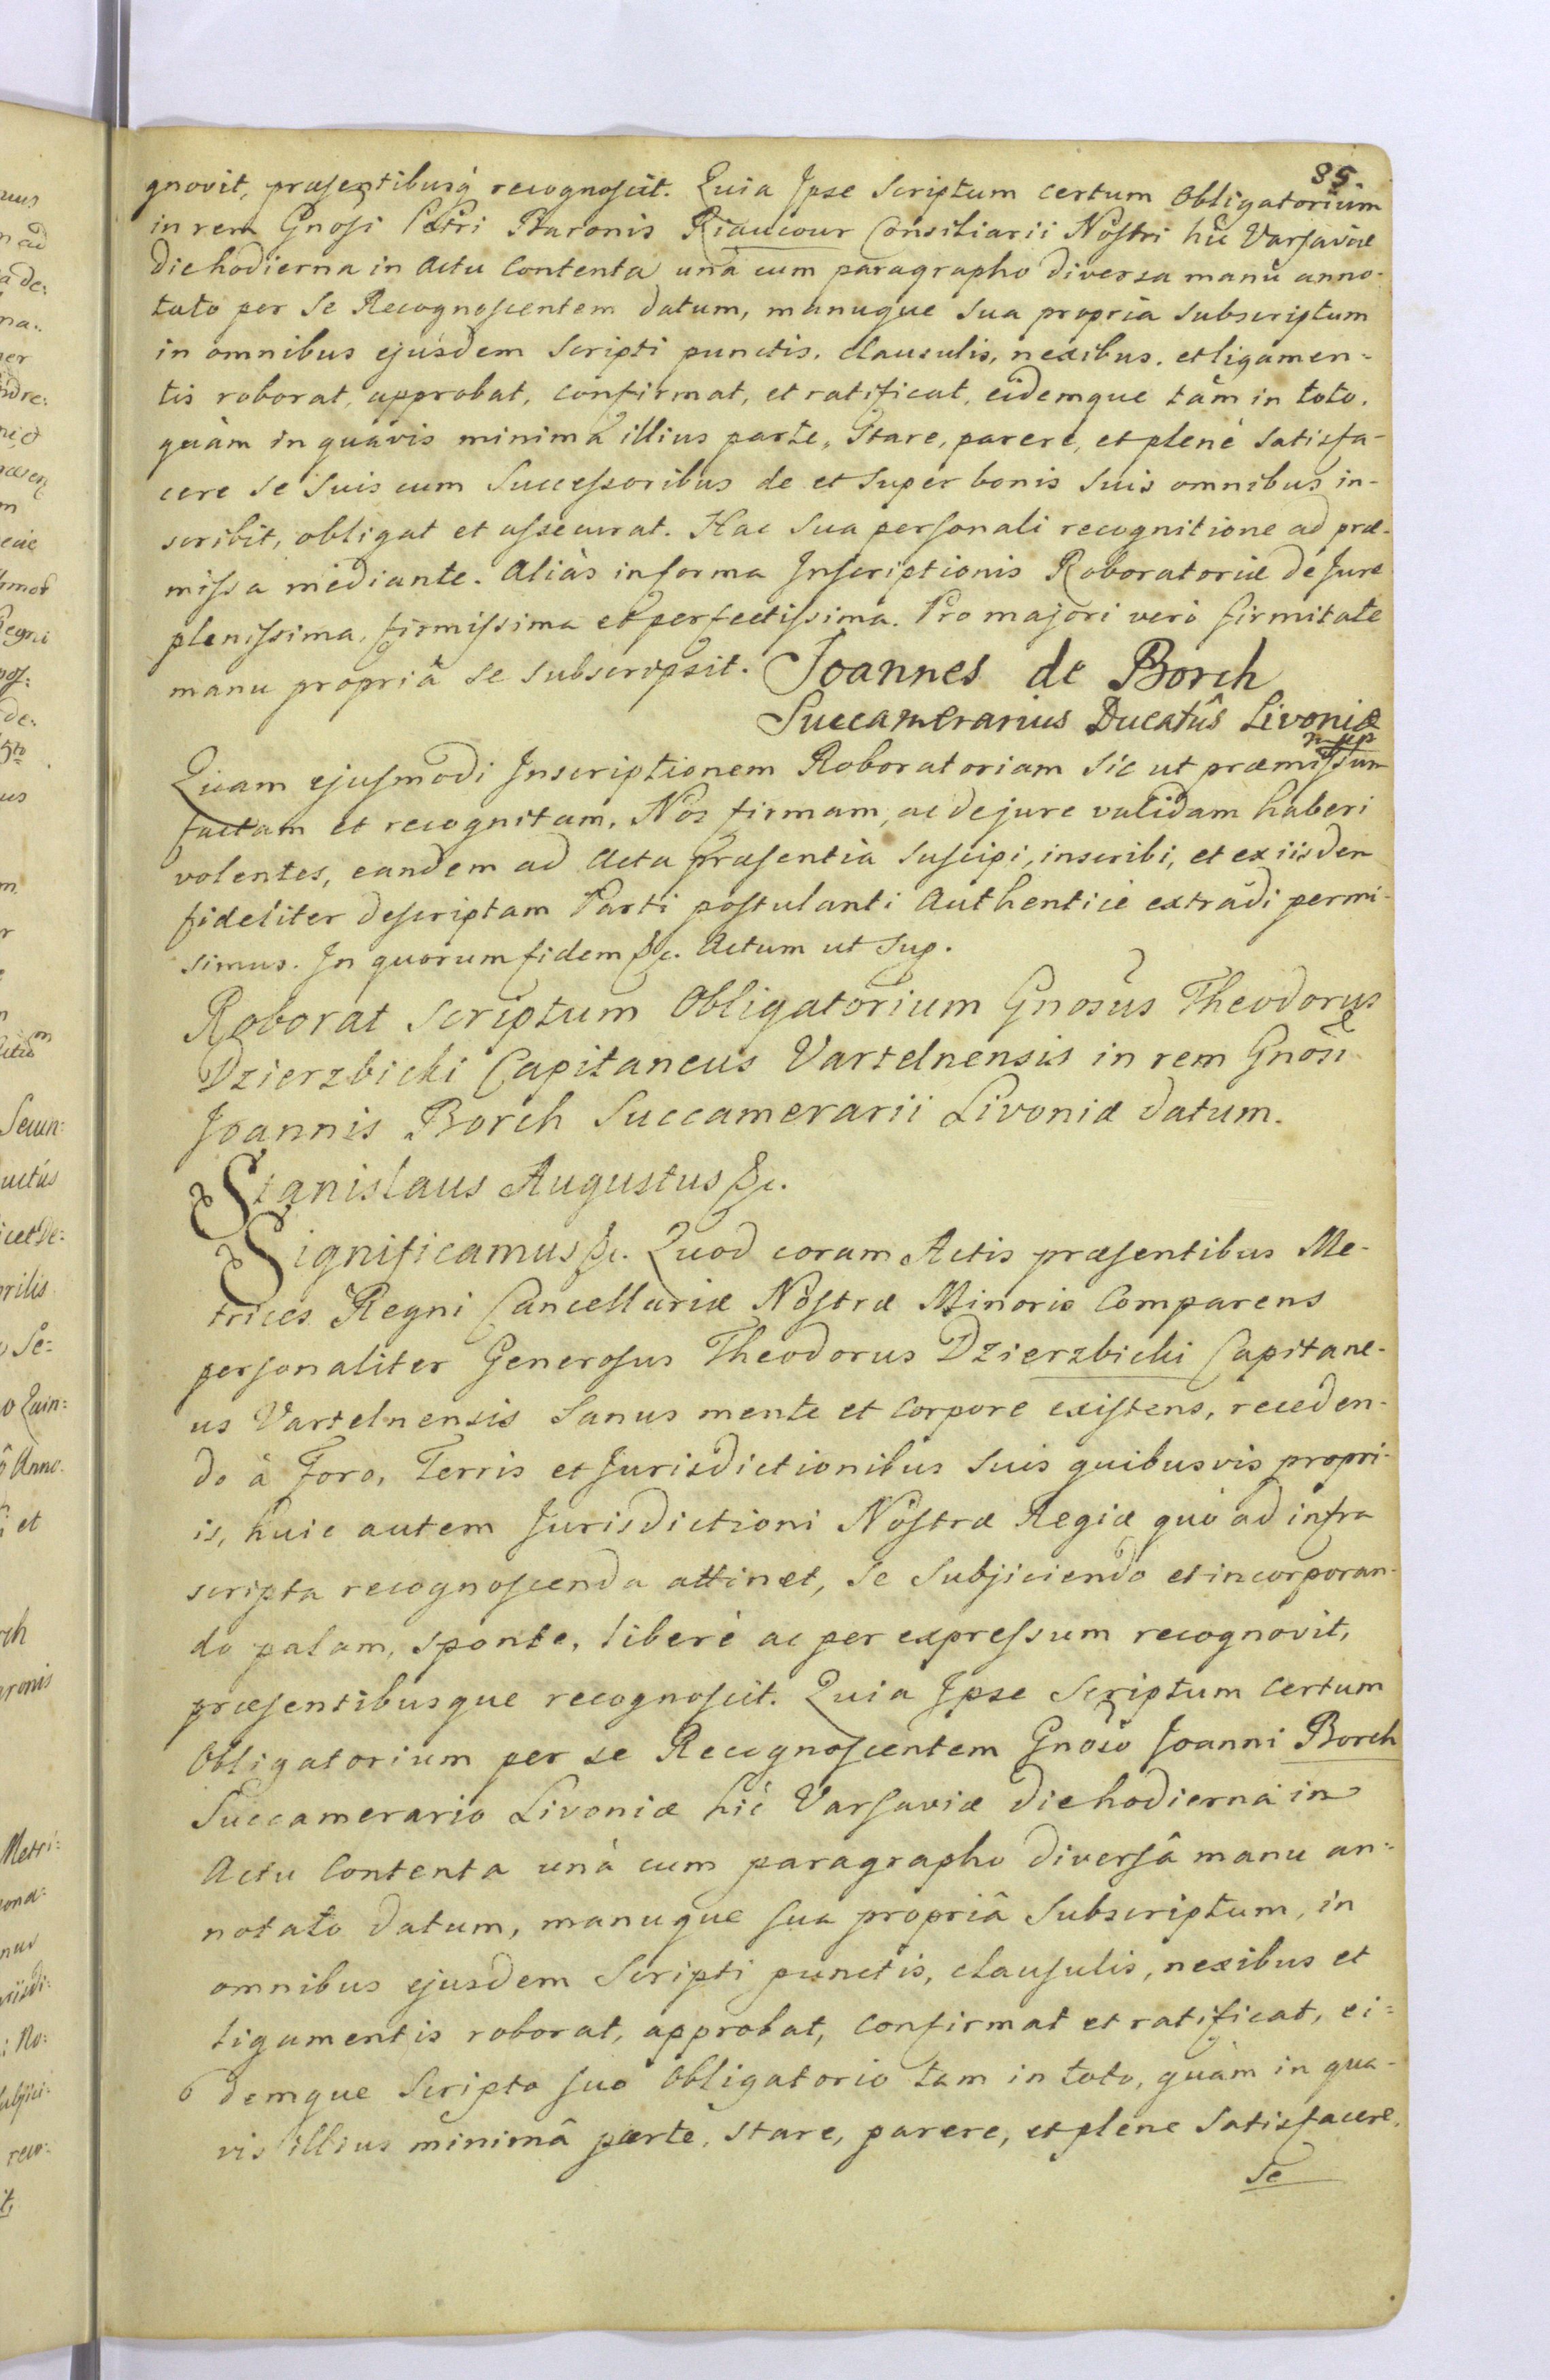 85.
gnovit, præsentibusq́ recognoscit. Quia Ipse Scriptum certum Obligatorium
in rem Gnosi Petri Baronis Riaucour Consiliarii Nostri hic Varsaviæ
die hodierna in Actu Contenta unà cum paragrapho diversa manû anno-
tato per Se Recognoscentem datum, manuque sua propria subscriptum
in omnibus ejusdem Scripti punctis, clausulis, nexibus, et ligamen-
tis roborat, approbat, confirmat, et ratificat, eidemque tàm in toto,
quàm in quâvis minimâ illius parte, Stare, parere, et plenè satisfa-
cere se suis cum Successoribus de et super bonis suis omnibus in-
scribit, obligat et assecurat. Hac sua personali recognitione ad præ-
missa mediante. Aliàs in forma Inscriptionis Roboratoriæ de Jure
plenissima, firmissima et perfectissima. Pro majori verò firmitate
manu propriâ se subscripsit. Joannes de Borch
Succamerarius Ducatûs Livoniæ
mpp
Quam ejusmodi Inscriptionem Roboratoriam sic ut præmissum
factam et recognitam, Nos firmam, ac de jure validam haberi
volentes, eandem ad Acta præsentia suscipi, inscribi, et ex iisdem
fideliter descriptam Parti postulanti Authenticè extradi permi-
simus. In quorum fidem &c. Actum ut sup.
Roborat Scriptum Obligatorium Gnosus Theodorus
Dzierzbicki Capitaneus Vartelnensis in rem Gnosi
Joannis Borch Succamerarii Livoniæ datum.
Stanislaus Augustus &c.
Significamus &c. Quod coram Actis præsentibus Me-
trices Regni Cancellariæ Nostræ Minoris Comparens
personaliter Generosus Theodorus Dzierzbicki Capitane-
us Vartelnensis Sanus mente et corpore existens, receden-
do â Foro, Terris et Jurisdictionibus suis quibusvis propri-
is, huic autem Jurisdictioni Nostræ Regiæ quò ad infra
scripta recognoscenda attinet, se subjiciendo et incorporan-
do palam, sponte, liberè ac per expressum recognovit,
præsentibusque recognoscit. Quia Ipse Scriptum certum
Obligatorium per se Recognoscentem Gnoso Joanni Borch
Succamerario Livoniæ hic Varsaviæ die hodierna in
Actu Contenta unà cum paragrapho diversâ manu an-
notato datum, manuque sua propriâ subscriptum, in
omnibus ejusdem Scripti punctis, clausulis, nexibus et
ligamentis roborat, approbat, confirmat et ratificat, ei-
demque Scripto suo Obligatorio tam in toto, quàm in qua-
vis illius minimâ parte, stare, parere, et plene satisfacere,
se